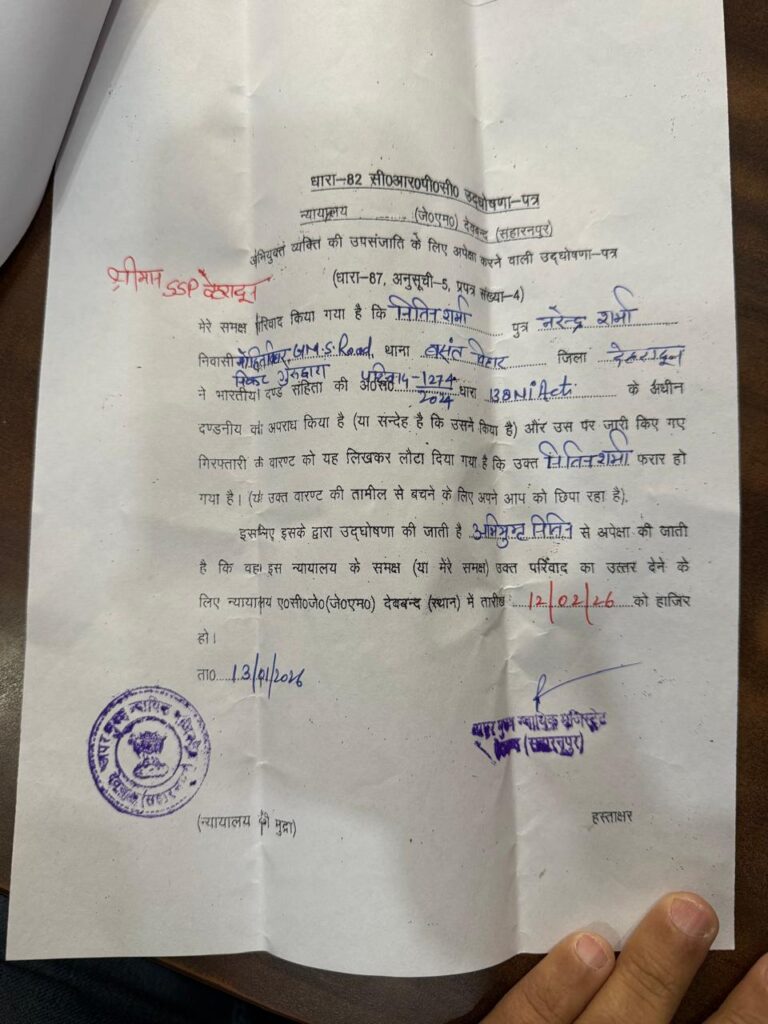 धारा-82 सी0आर0पी0सी0 उद्घोषणा-पत्र
न्यायालय ............ (जे0एम0) देवबन्द (सहारनपुर)
अभियुक्त व्यक्ति की उपसंजाति के लिए अपेक्षा करने वाली उद्घोषणा-पत्र
श्रीमान SSP देहरादून
(धारा-87, अनुसूची-5, प्रपत्र संख्या-4)
मेरे समक्ष परिवाद किया गया है कि नितिन शर्मा पुत्र नरेन्द्र शर्मा
निवासी मोहितविहार, G.M.S. Road, थाना वसंत विहार जिला देहरादून
निकट गुरुद्वारा
ने भारतीय दण्ड संहिता की अ0सं0 1274/2024 धारा 138 NI Act के अधीन
दण्डनीय का अपराध किया है (या सन्देह है कि उसने किया है) और उस पर जारी किए गए
गिरफ्तारी के वारण्ट को यह लिखकर लौटा दिया गया है कि उक्त नितिन शर्मा फरार हो
गया है। (या उक्त वारण्ट की तामील से बचने के लिए अपने आप को छिपा रहा है).
इसलिए इसके द्वारा उद्घोषणा की जाती है अभियुक्त नितिन से अपेक्षा की जाती
है कि वह इस न्यायालय के समक्ष (या मेरे समक्ष) उक्त परिवाद का उत्तर देने के
लिए न्यायालय ए0सी0जे0(जे0एम0) देवबन्द (स्थान) में तारीख 12/02/26 को हाजिर
हो।
ता0 13/01/2026
अपर मुख्य न्यायिक मजिस्ट्रेट
देवबन्द (सहारनपुर)
अपर मुख्य न्यायिक मजिस्ट्रेट
देवबन्द (सहारनपुर)
(न्यायालय की मुद्रा)
हस्ताक्षर